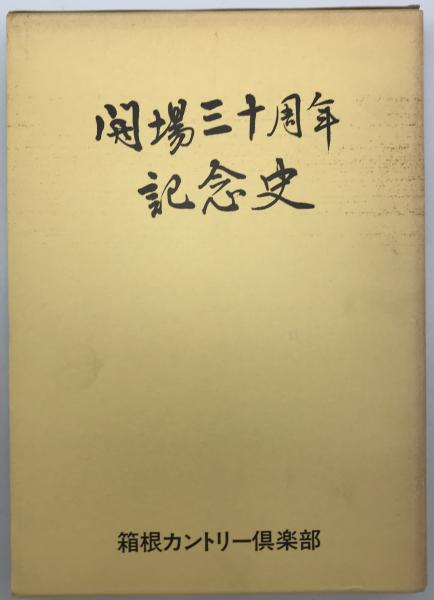 開場三十周年
記念史
箱根カントリー倶楽部